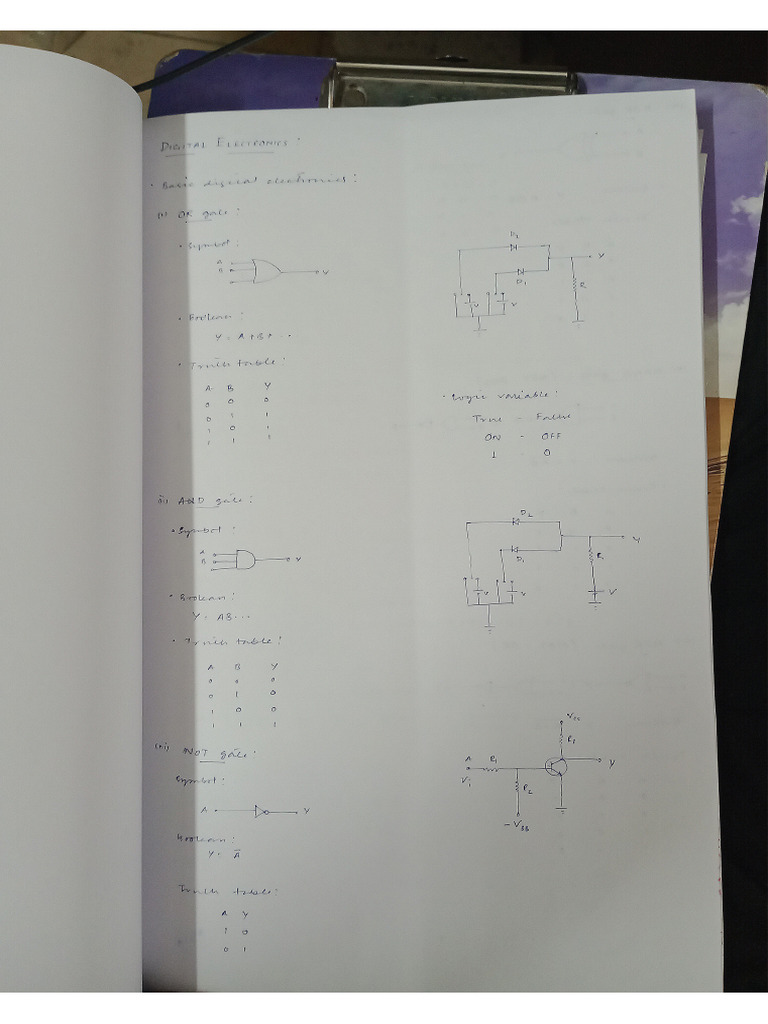 DIGITAL ELECTRONICS :
• Basic digital electronics :
(i) OR gate :
• Symbol :
A
B
Y
D2
D1
Y
R
V
V
• Boolean :
Y = A+B+ ...
• Truth table :
A B Y
0 0 0
0 1 1
1 0 1
1 1 1
• Logic variable :
True - False
ON - OFF
1 - 0
(ii) AND gate :
• Symbol :
A
B
Y
D2
D1
Y
R
V
V
V
• Boolean :
Y = AB...
• Truth table :
A B Y
0 0 0
0 1 0
1 0 0
1 1 1
(iii) NOT gate :
Symbol :
A Y
Boolean :
Y = Ā
Truth table :
A Y
1 0
0 1
Vcc
A
Vi
R1
R2
Y
-VBB